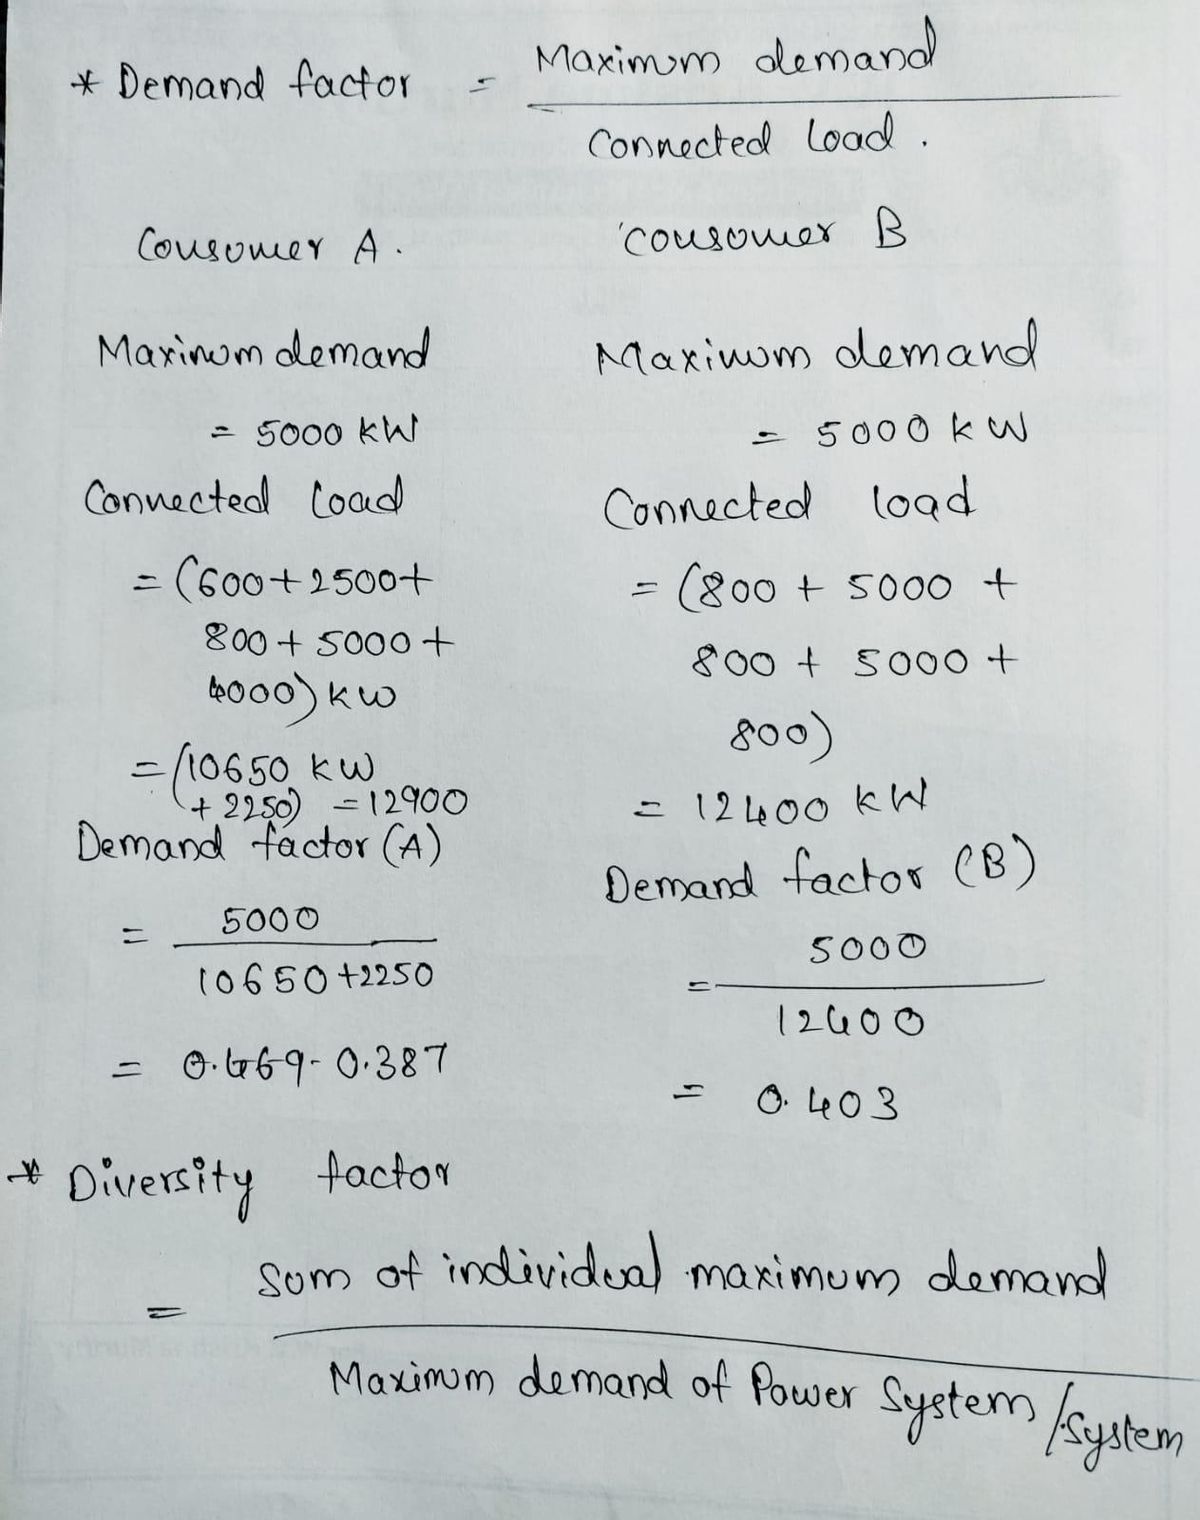 * Demand factor = Maximum demand
Connected load.
Consumer A.
Maximum demand
= 5000 kW
Connected load
= (600+2500+
800+5000+
4000) kW
= (10650 kW
+ 2250) = 12900
Demand factor (A)
= 5000
10650+2250
= 0.469- 0.387
Consumer B
Maximum demand
= 5000 kW
Connected load
= (800 + 5000 +
800 + 5000 +
800)
= 12400 kW
Demand factor (B)
= 5000
12400
= 0.403
* Diversity factor
= Sum of individual maximum demand
Maximum demand of Power System /System